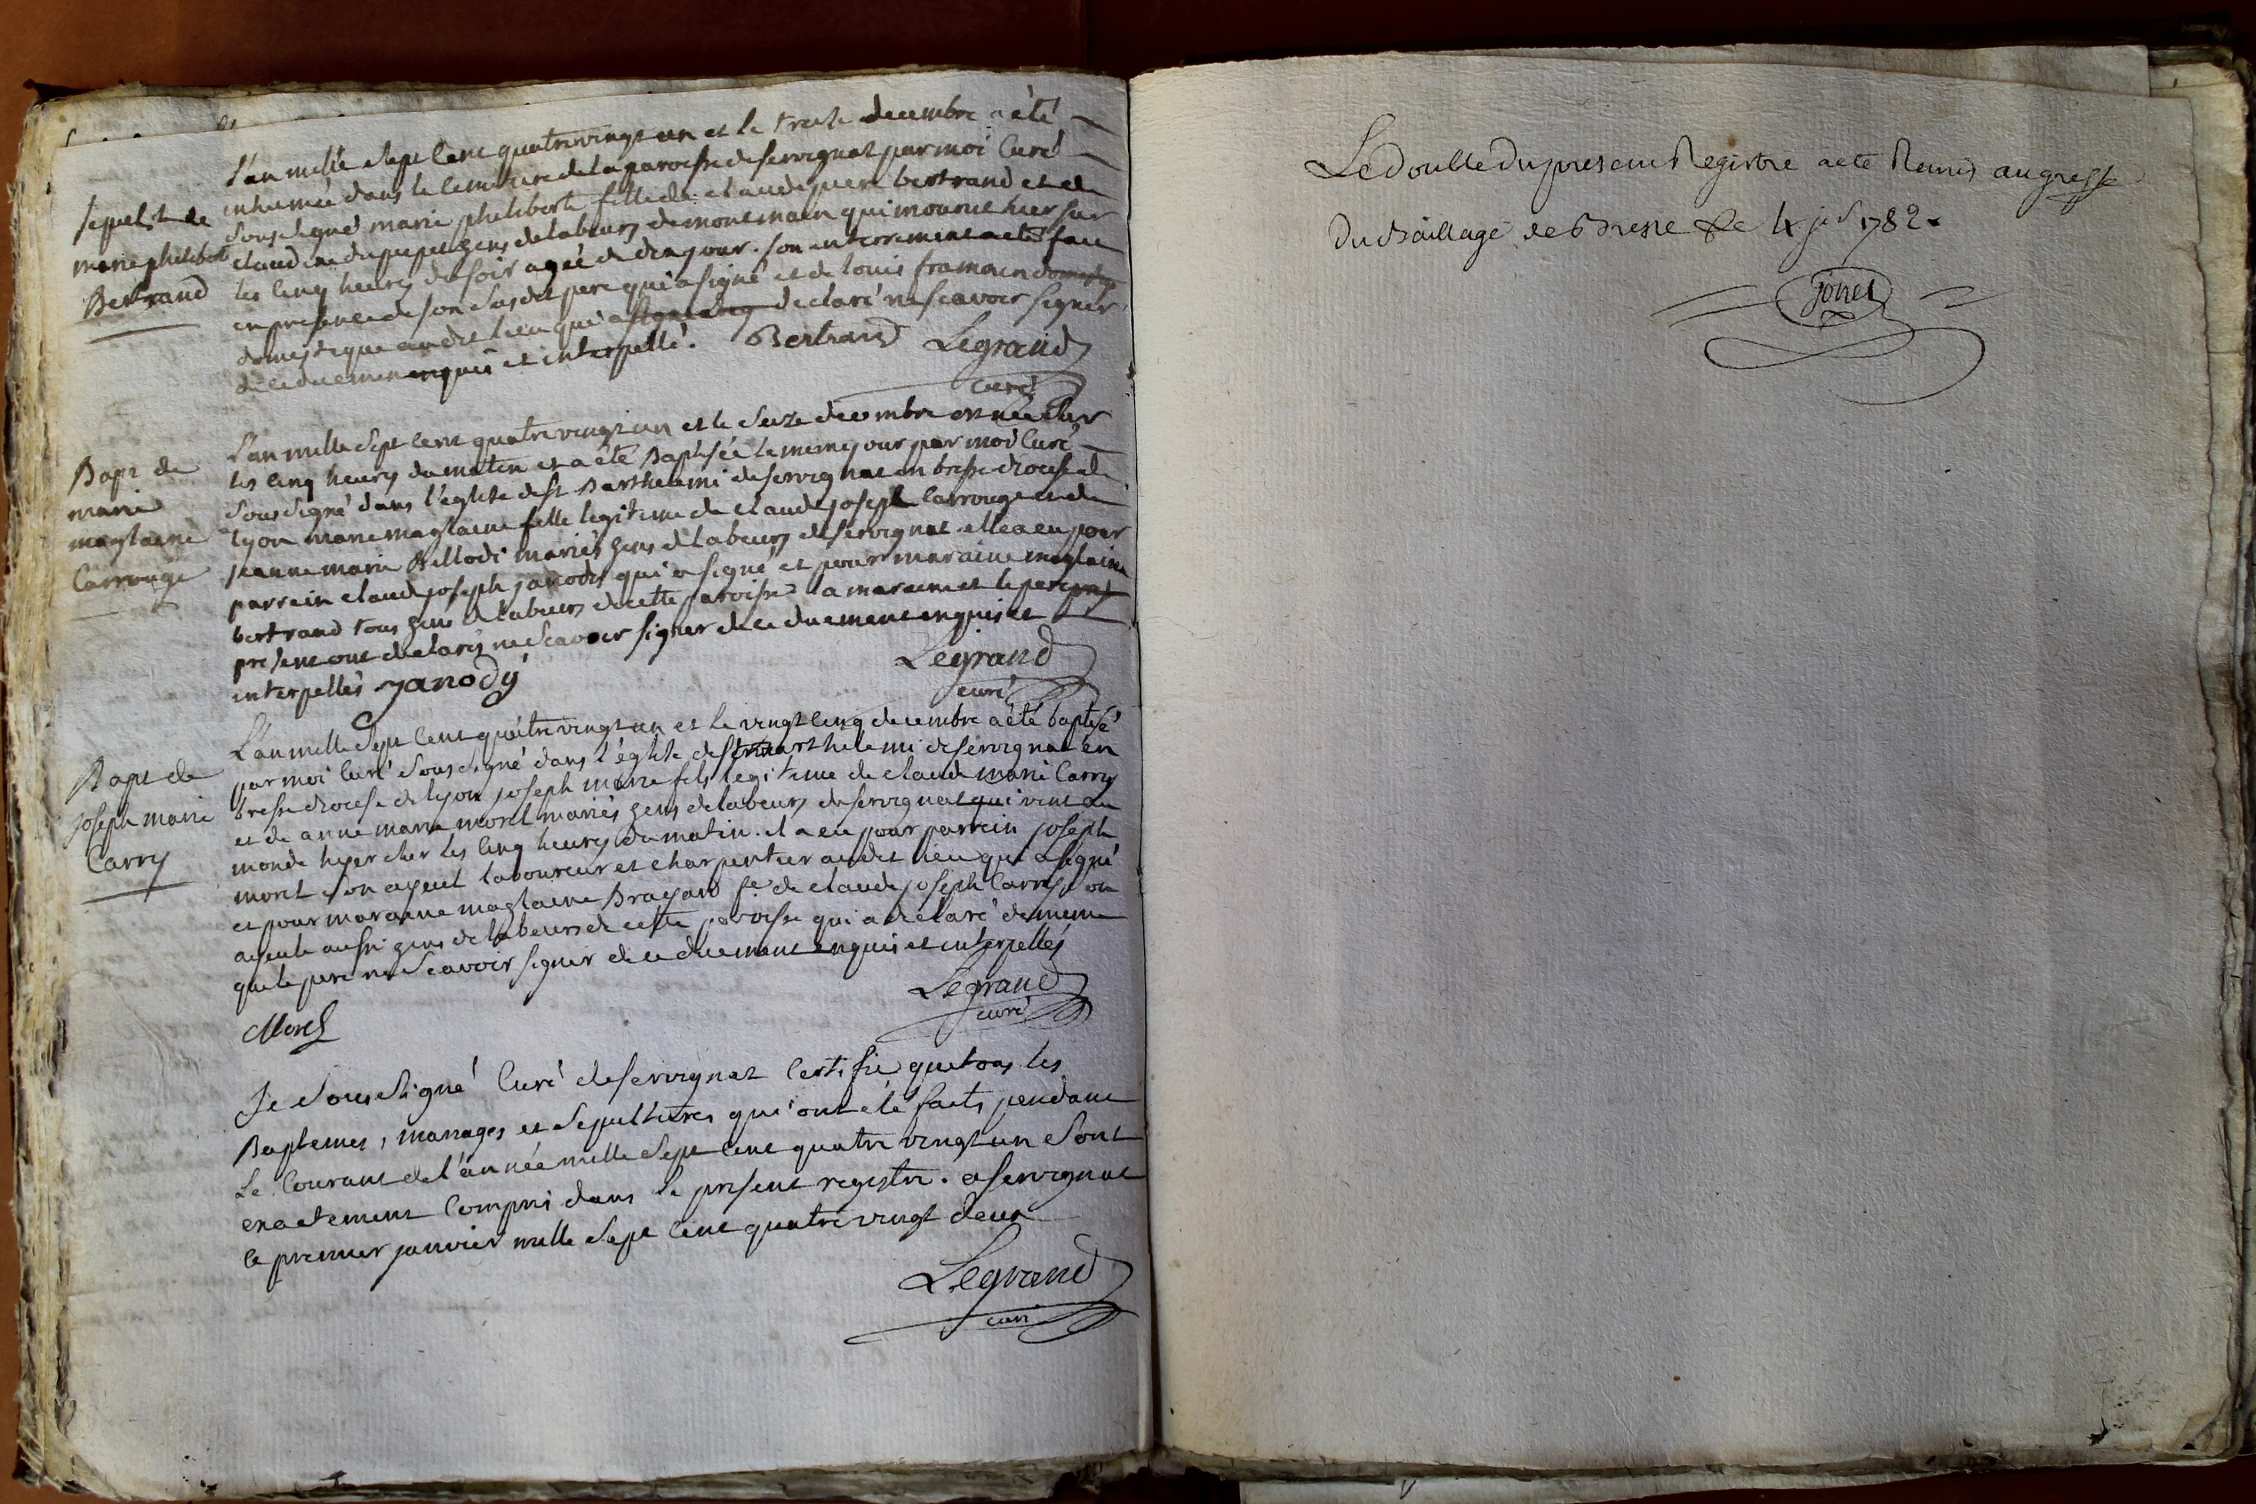 Sepult de
marie philiberte
Bertrand
L'an mille sept cent quatrevingt un et le treize decembre a été
inhumée dans le cimetiere de la paroisse de servignat par moi Curé
soussigné marie philiberte fille de claude pierre bertrand et de
claudine dupupet gens de labeurs de montmain qui mourut hier sur
les cinq heures du soir agée de dix jour. son enterrement a eté fait
en presence de son susdit pere qui a signé et de louis framain
domestique audit lieu qui a declaré ne scavoir signer
de ce duement enquis et interpellé. Bertrand Legrand
curé
Bapt de
marie
maglaene
Carrouge
L'an mille sept cent quatre vingt un et le seize decembre est née sur
les cinq heures du matin et a été Baptisée le meme jour par moi Curé
soussigné dans l'église de st Barthelemi de servignat en bresse diocese de
lyon marie maglaene fille legitime de claude joseph Carrouge et de
jeanne marie Billodi mariés gens de labeurs de servignat elle a eu pour
parrein claude joseph janodi qui a signé et pour maraine maglaine
bertrand tous gens de labeurs de cette paroisse la maraine et le pere
present ont declarés ne scavoir signer de ce duement enquis et
interpellés janody Legrand
curé
Bapt de
joseph marie
Carry
L'an mille sept cent quatre vingt un et le vingt cinq decembre a été baptisé
par moi Curé soussigné dans l'église de st barthelemi de servignat en
bresse diocese de lyon joseph marie fils legitime de claude marie Carry
et de anne marie morel mariés gens de labeurs de servignat qui vint au
monde hyer les cinq heures du matin. il a eu pour parrein joseph
morel son ayeul laboureur et charpentier audit lieu qui a signé
et pour maraine maglaene Brayard fe de claude joseph Carry, son
ayeule aussi gens de labeurs de cette paroisse qui a declaré de meme
que le pere ne scavoir signer de ce duement enquis et interpellés
Morel Legrand
curé
Je soussigné Curé de servignat Certifie que tous les
Baptemes, mariages et sepultures qui ont été faits pendant
Le Courant de l'année mille sept cent quatre vingt un sont
exactement compris dans le present registre. a servignat
le premier janvier mille sept cent quatre vingt deux
Legrand
curé
Le double du present Registre a eté Remis au greffe
Du Bailliage de Bresse Le 4 jer 1782.